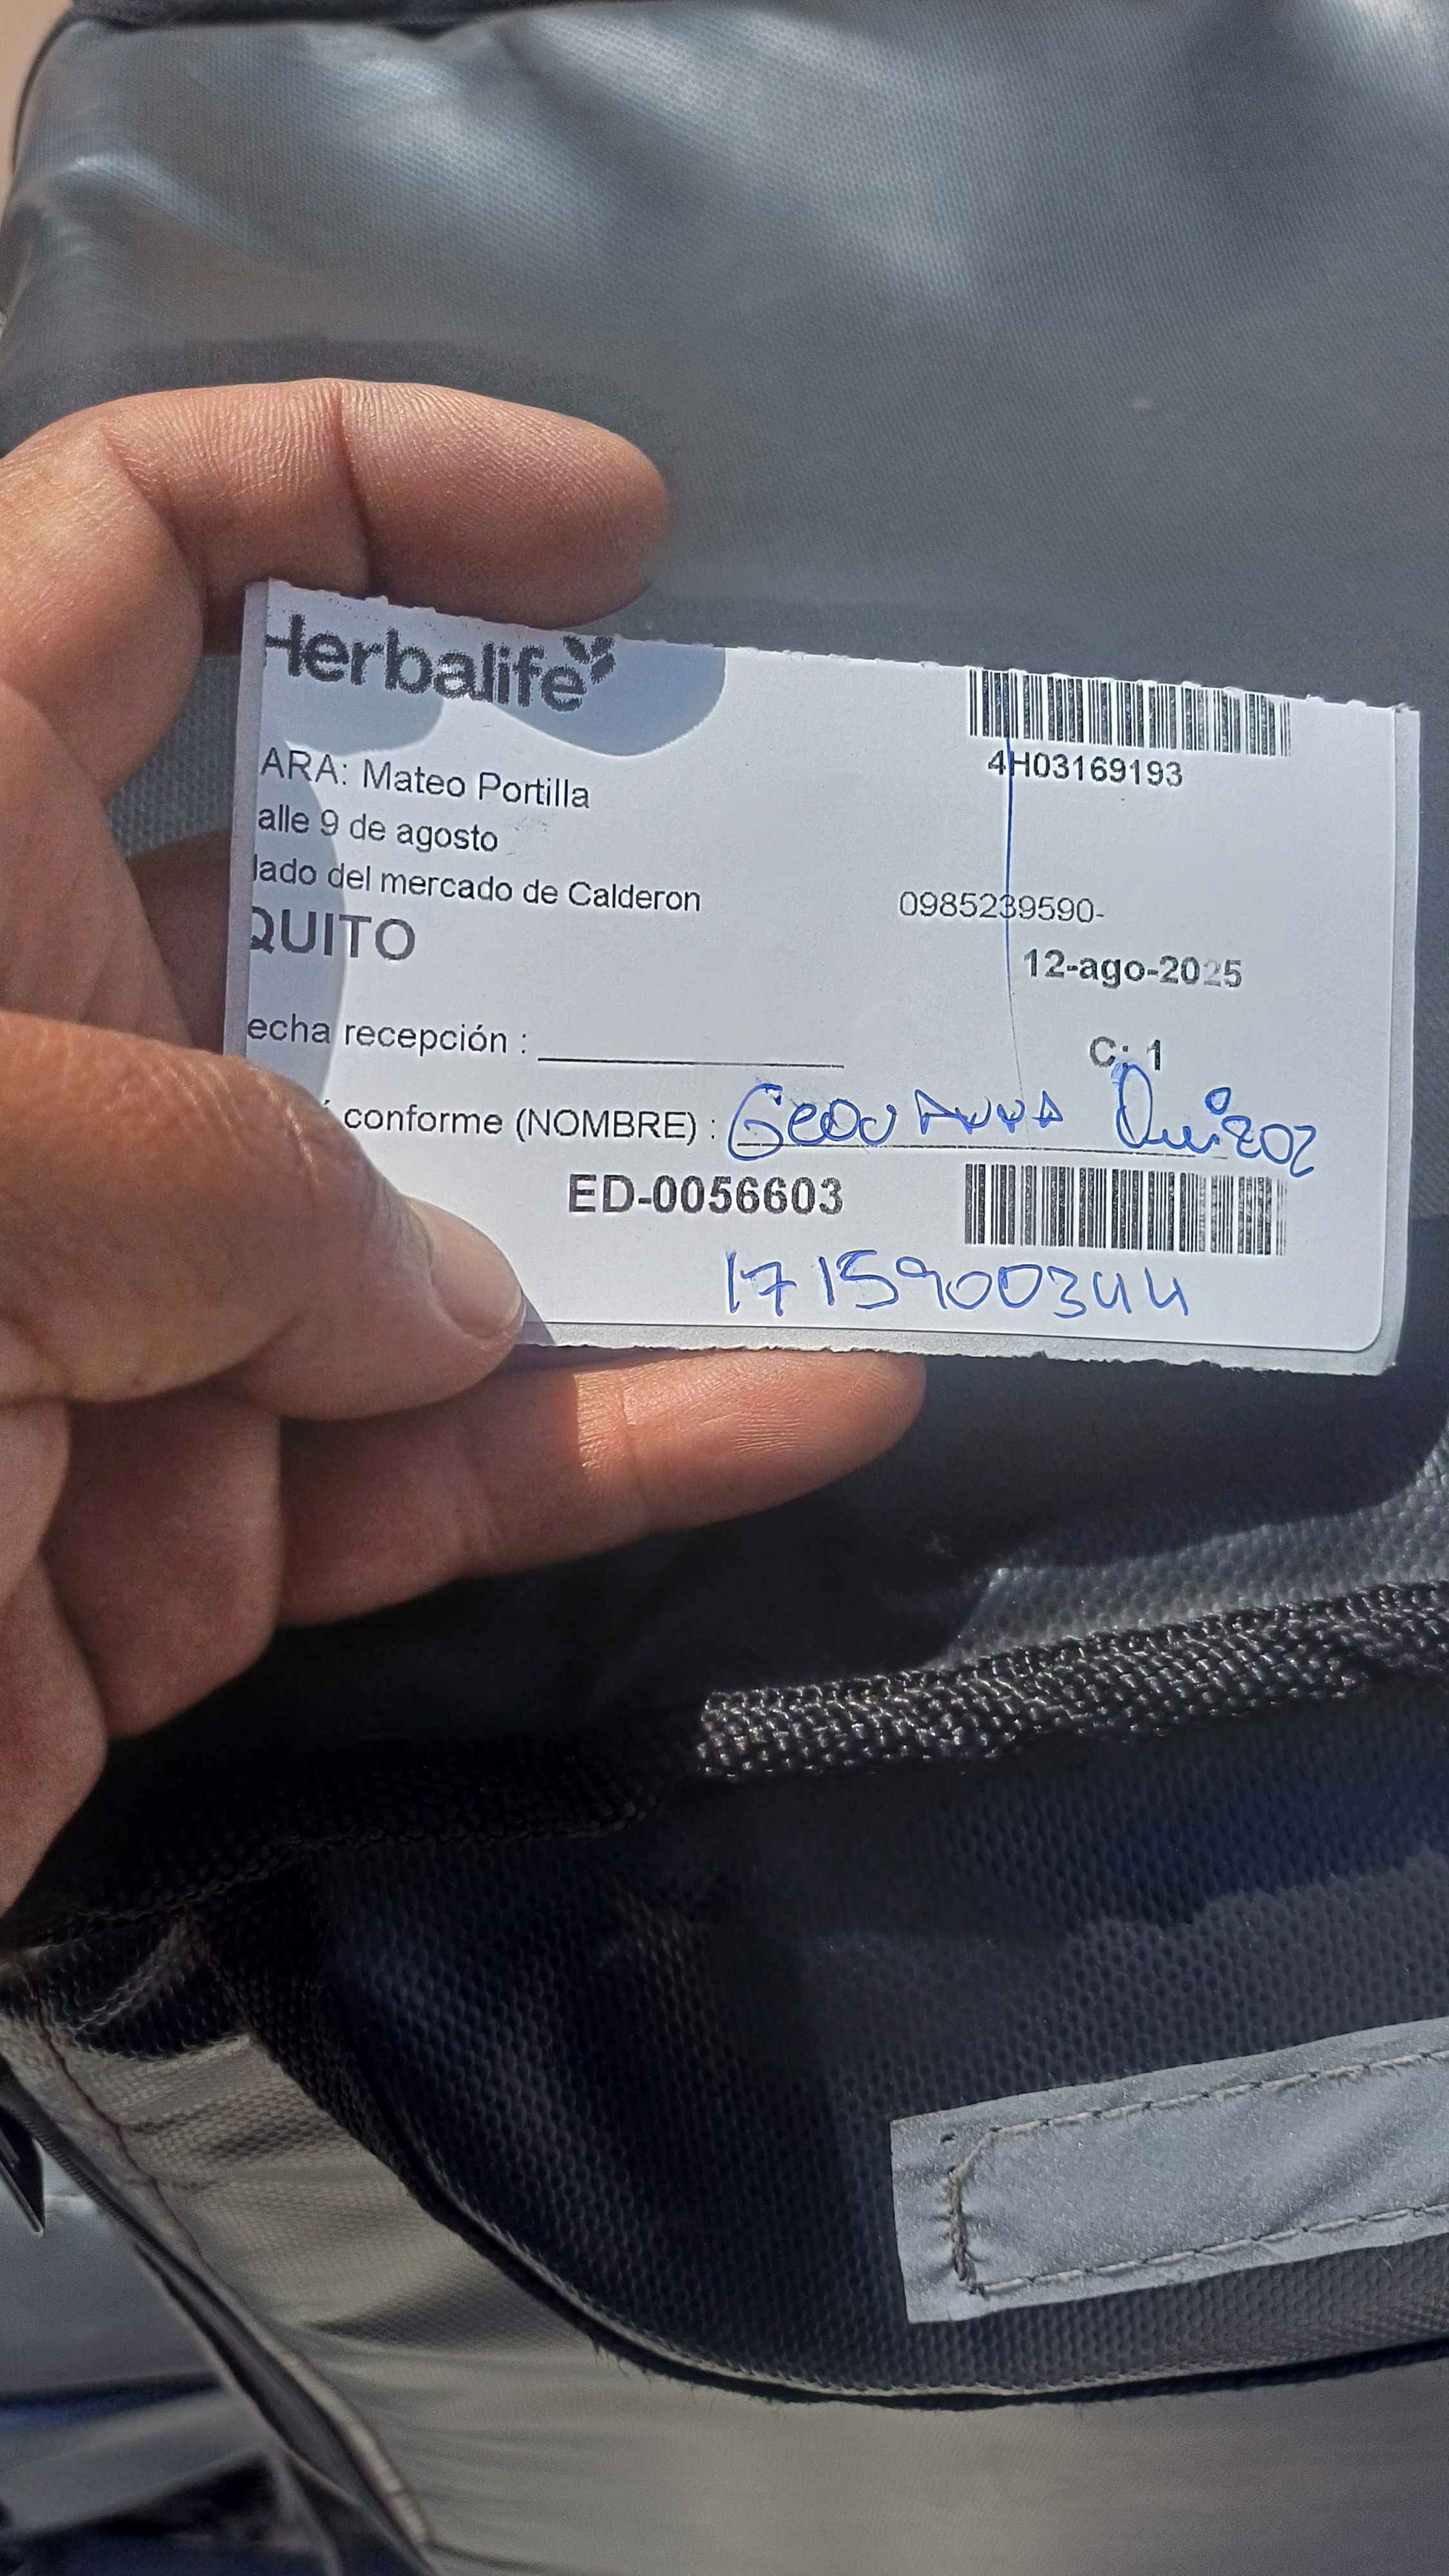 Herbalife
4H03169193
ARA: Mateo Portilla
alle 9 de agosto
lado del mercado de Calderon
0985239590-
QUITO
12-ago-2025
echa recepción :
C: 1
conforme (NOMBRE) : Geovanna
ED-0056603
1715900344